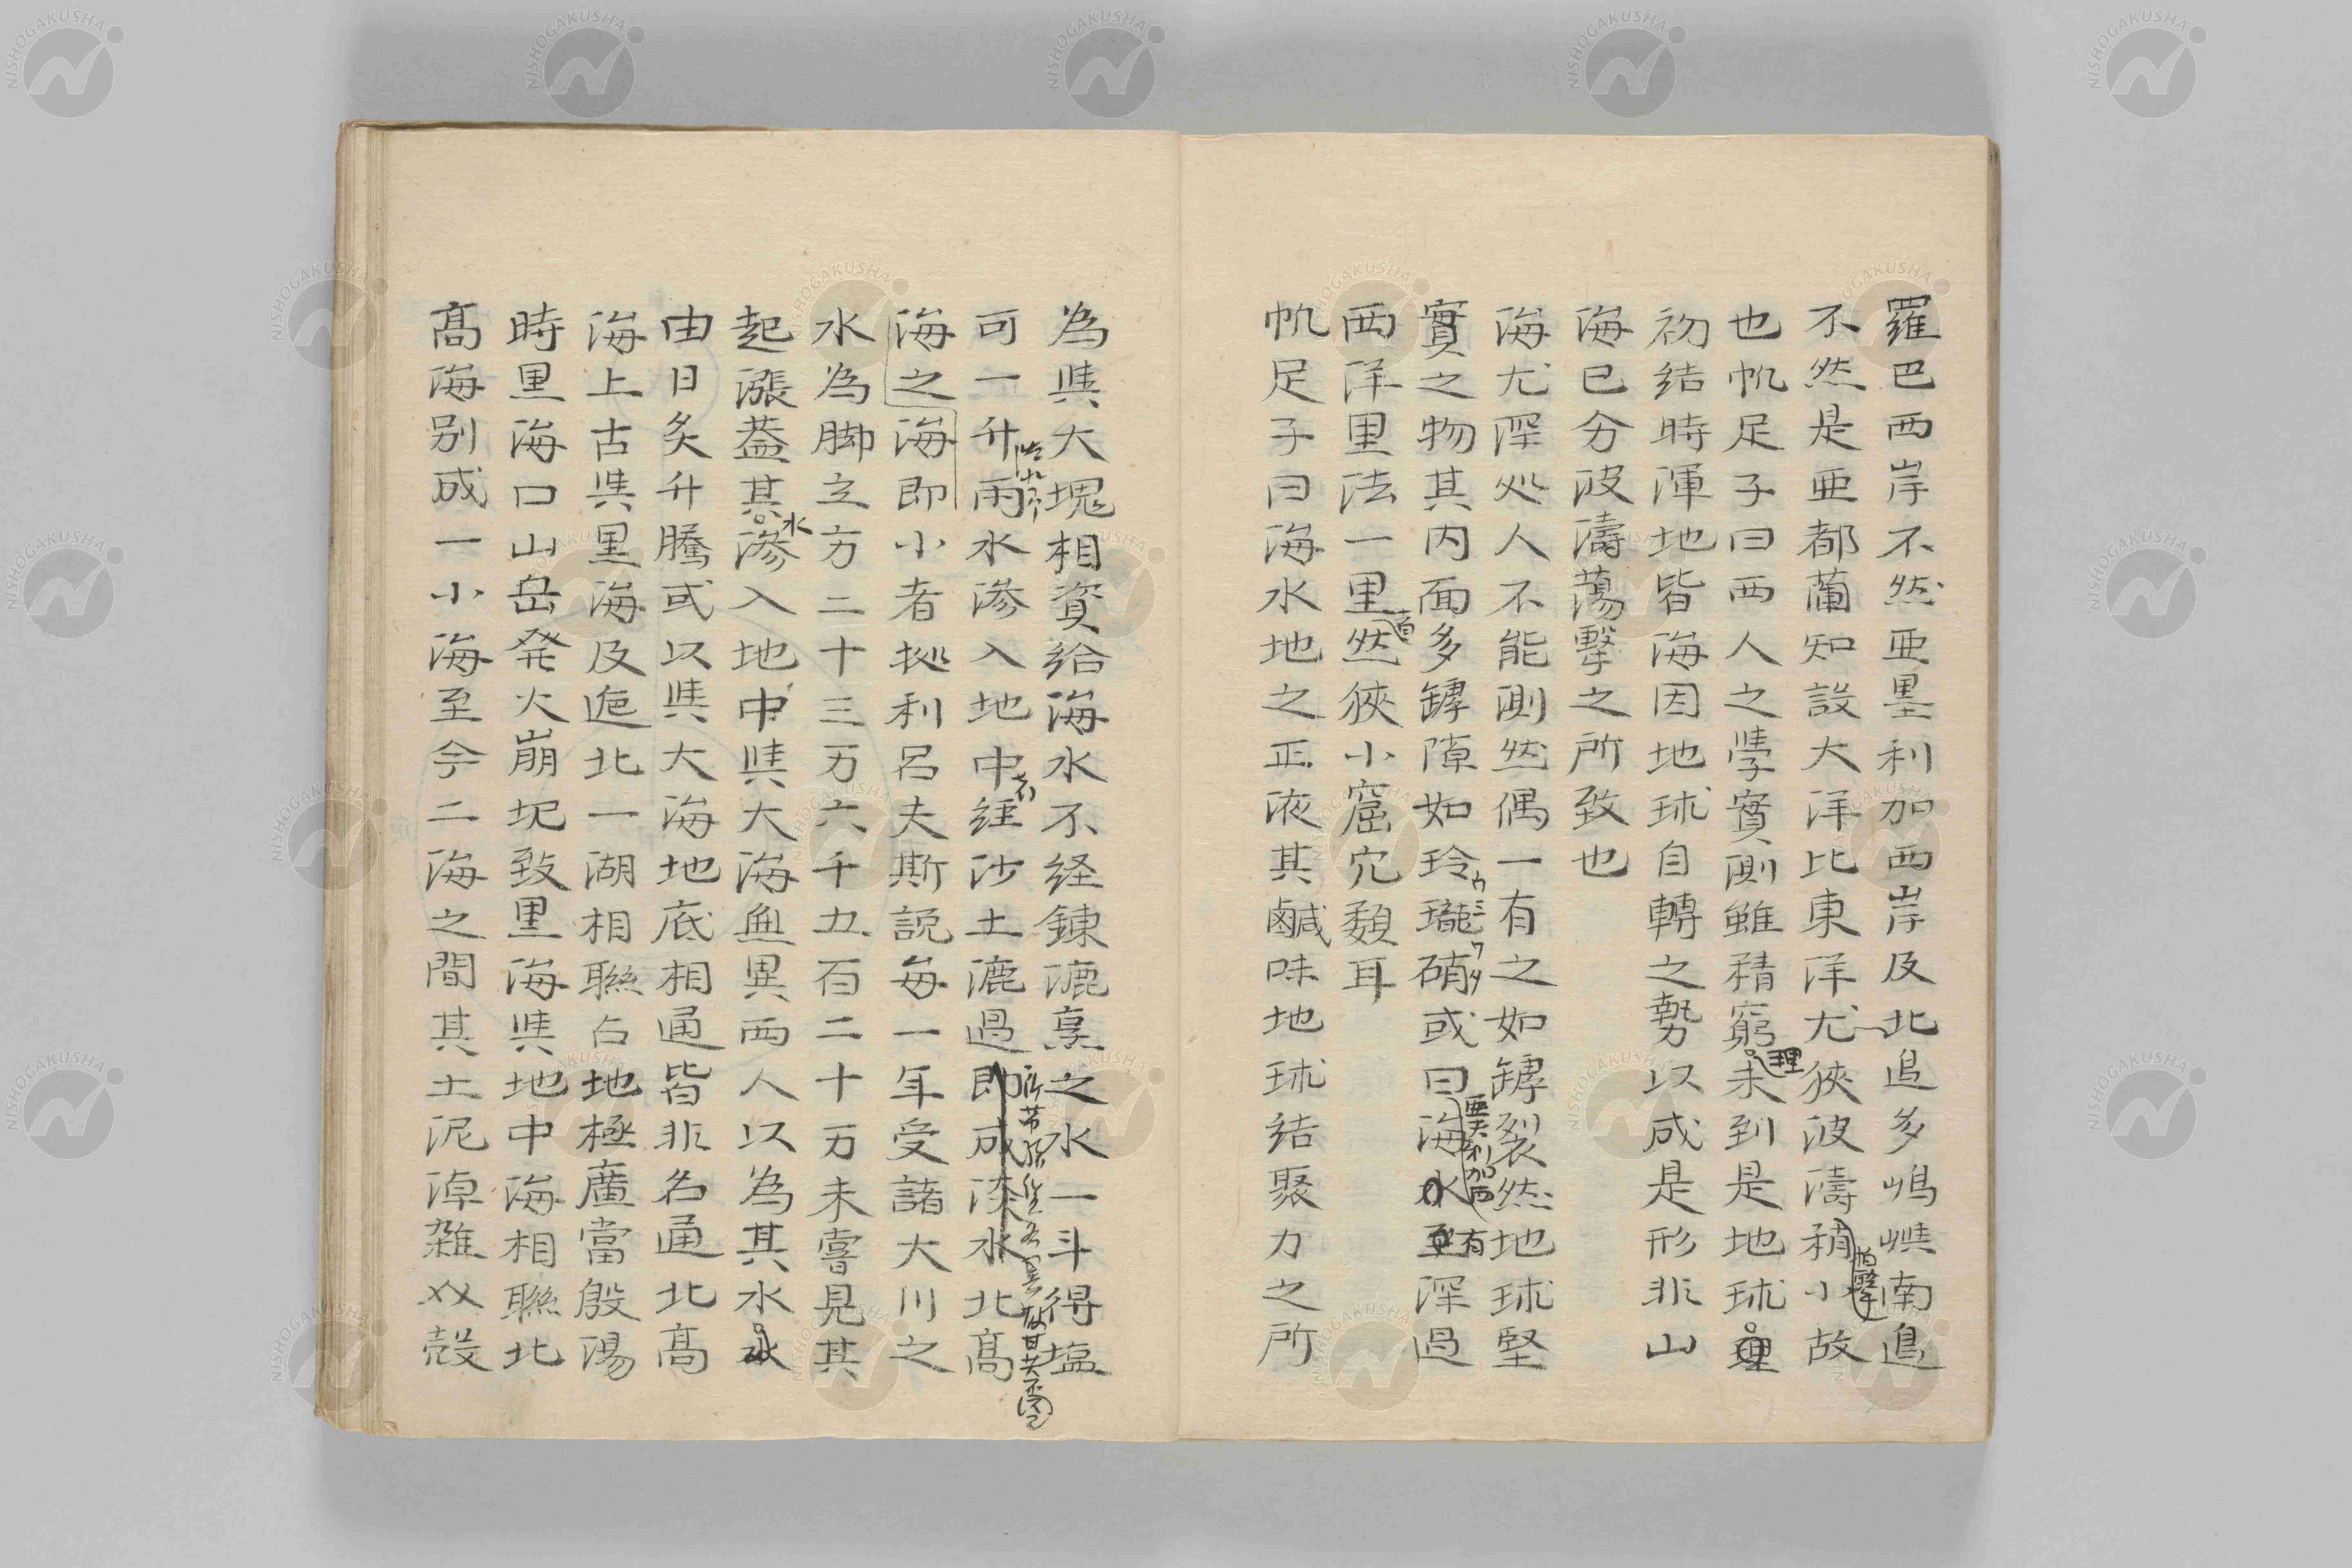 羅巴西岸不然亜墨利加西岸及北邉多嶋嶼南邉
不然是亜都蘭知設大洋比東洋尤狹波濤稍小故
也帆足子曰西人之學實測雖精窮未到是地球理
初結時渾地皆海因地球自轉之勢以成是形非山
海已分波濤蕩擊之所致也
海尤深処人不能測然偶一有之如罅裂然地球堅
實之物其内面多罅隙如玲瓏硝或曰海水更深過
西洋里法一里然狹小窟穴類耳
帆足子曰海水地之正液其鹹味地球結聚力之所
為與大塊相資給海水不経錬漉烹之水一斗得塩
可一升雨水滲入地中経沙土漉過即成淡水北高
海之海即小者拠利呂夫斯説毎一年受諸大川之
水為脚立方二十三万六千五百二十万未嘗見其
起漲葢其滲入地中與大海無異西人以為其水
由日炙升騰或以與大海地底相通皆非名通北高
海上古與黒海及迤北一湖相聯占地極廣當殷湯
時里海口山岳発火崩圮致黒海與地中海相聯北
高海別成一小海至今二海之間其土泥淖雑以殻
理
亜夫利加西
有
ウミニワタ
水
NISHOGAKUSHA